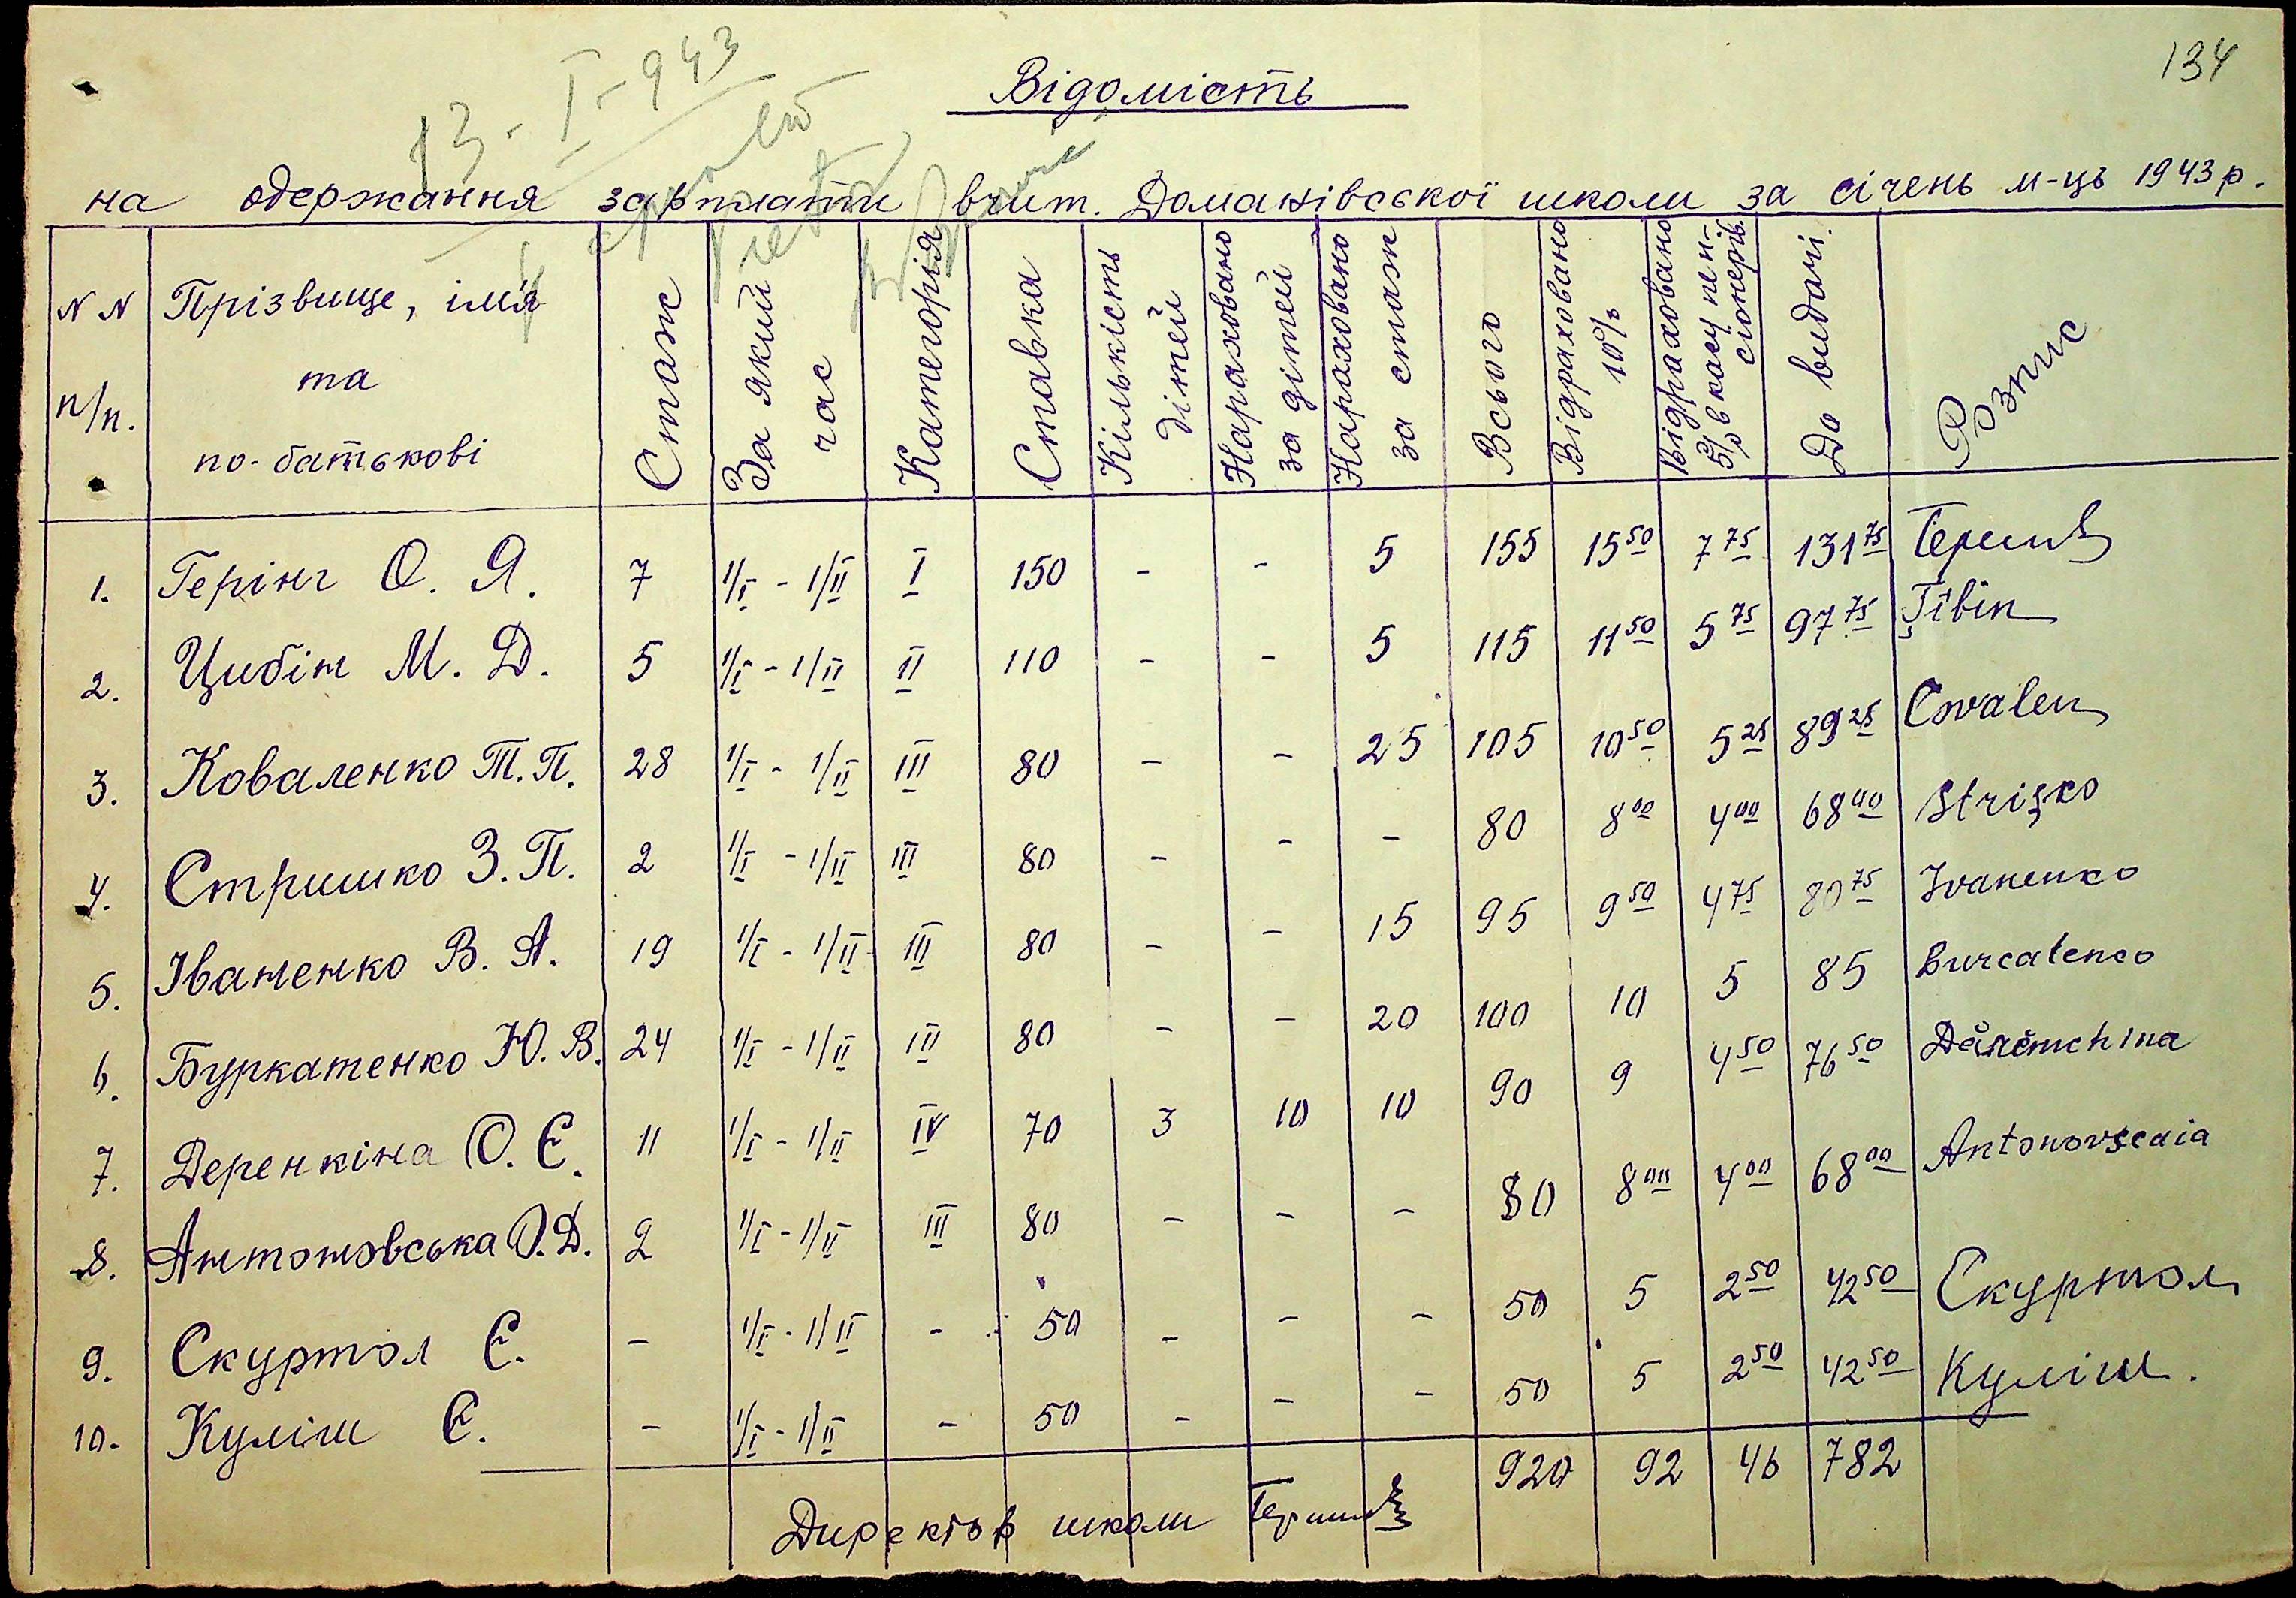 134
13 - I - 943
Відомість
на одержання зарплати вчит. Доманівської школи за січень м-ць 1943 р.
N N п/п. | Прізвище, ім'я та по-батькові | Стаж | За який час | Категорія | Ставка | Кількість дітей | Нараховано за дітей | Нараховано за стаж | Всього | Відраховано 10% | Відраховано 5% в касу пенсіонерів. | До видачі. | Розпис
1. Герінг О. Я. 7 1/I - 1/II I 150 - - 5 155 15 50 7 75 131 75
2. Цибін М. Д. 5 1/I - 1/II II 110 - - 5 115 11 50 5 75 97 75 Țîbin
3. Коваленко Т. П. 28 1/I - 1/II III 80 - - 25 105 10 50 5 25 89 25 Covalen
4. Стришко З. П. 2 1/I - 1/II III 80 - - - 80 8 00 4 00 68 00 Strișco
5. Іваненко В. А. 19 1/I - 1/II III 80 - - 15 95 9 50 4 75 80 75 Ivanenco
6. Буркатенко Ю. В. 24 1/I - 1/II III 80 - - 20 100 10 5 85 Burcatenco
7. Деренкіна О. Є. 11 1/I - 1/II IV 70 3 10 10 90 9 4 50 76 50
8. Антоновська О. Д. 2 1/I - 1/II III 80 - - - 80 8 00 4 00 68 00 Antonovscaia
9. Скуртол Є. - 1/I - 1/II - 50 - - - 50 5 2 50 42 50 Скуртол
10. Куліш Є. - 1/I - 1/II - 50 - - - 50 5 2 50 42 50 Куліш.
920 92 46 782
Директор школи